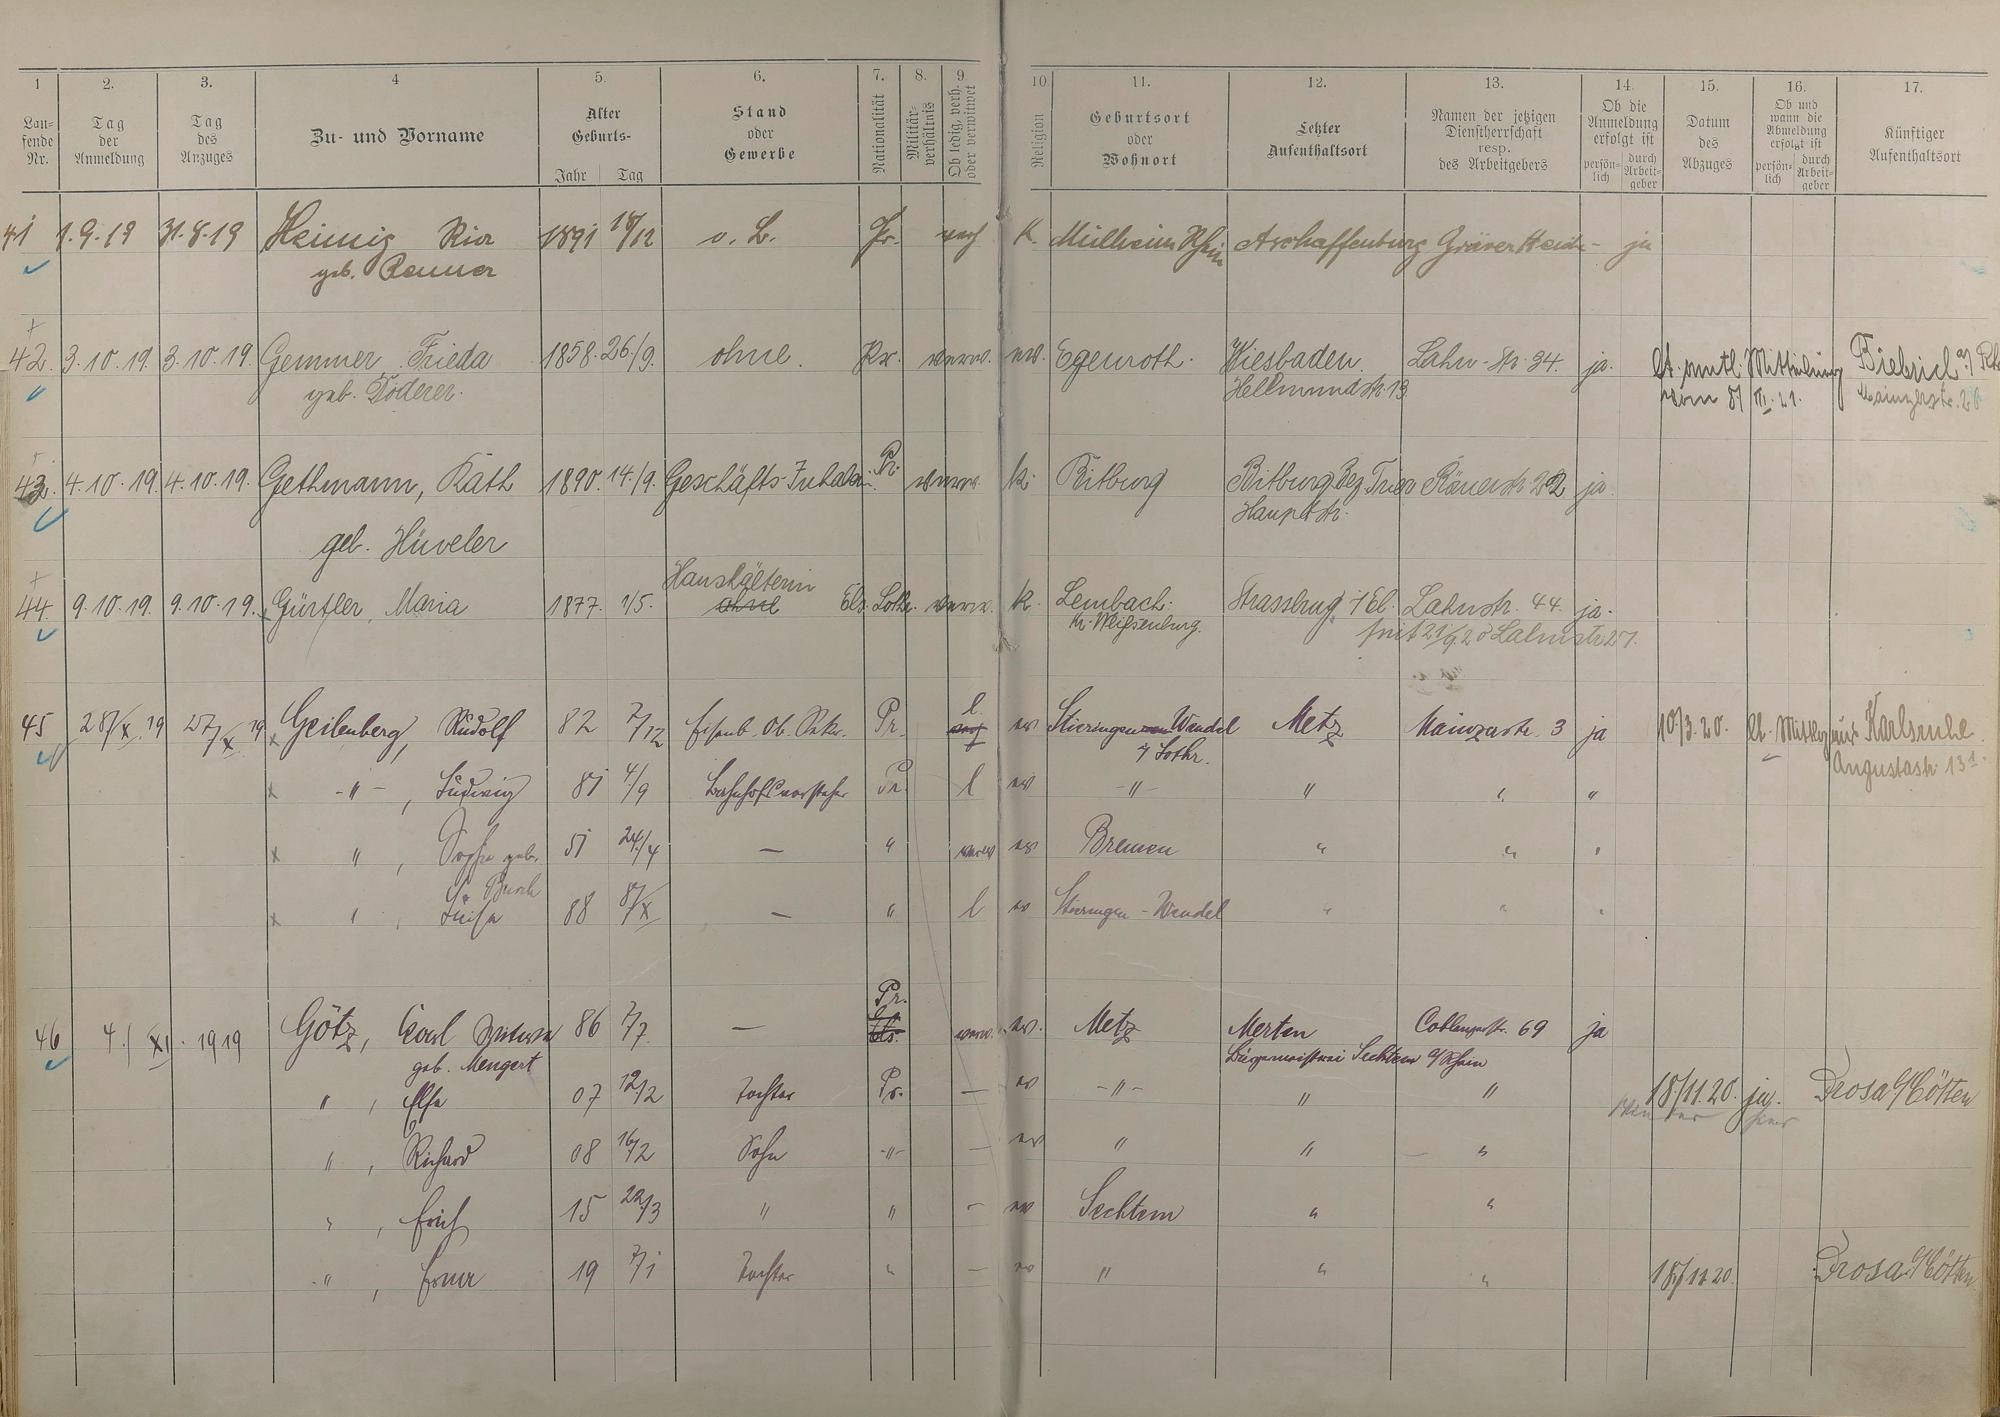 1 2. 3. 4 5. 6. 7. 8. 9. 10. 11. 12. 13. 14. 15. 16. 17.
Lau=fende Nr. Tag der Anmeldung Tag des Anzuges Zu- und Vorname Alter Geburts- Jahr Tag Stand oder Gewerbe Nationalität Militär-verhältnis Ob ledig, verh. oder verwitwet Religion Geburtsort oder Wohnort Letzter Aufenthaltsort Namen der jetzigen Dienstherrschaft resp. des Arbeitgebers Ob die Anmeldung erfolgt ist persön-lich durch Arbeit-geber Datum des Abzuges Ob und wann die Abmeldung erfolgt ist persön-lich durch Arbeit-geber Künftiger Aufenthaltsort
41 1.9.19 31.8.19 1891 18/12 o. B. K. Mülheim Rhein Aschaffenburg ja
geb.
42. 3.10.19. 3.10.19. Gemmer, Frieda 1858. 26./9. ohne. Pr. verw. ev. Egenroth. Wiesbaden. Lahn-Str. 34. ja. lt. amtl. Mitteilung Biebrich a/Rh
geb. Döderer. Hellmundstr. 13. vom 8/III.21. Mainzerstr. 26
43. 4.10.19. 4.10.19. Gethmann, Käth 1890. 14./9. Geschäfts-Inhaberin Pr. verw. k. Bitburg Bitburg Bez. Trier 22 ja.
Hauptstr.
geb. Hüveler
Haushälterin
44. 9.10.19. 9.10.19. Gürtler, Maria 1877. 1/5. ohne Els. Lothr. verw. k. Lembach. Strassbrug i/El. Lahnstr. 44. ja.
Kr. Weißenburg. seit 21/9.20 Lahnstr. 27.
l.
45 28/X.19 27/X.19 Geilenberg, Rudolf 82 7/12 Eisenb. Ob. Sekr. Pr. ev Stieringen Wendel Metz Mainzerstr. 3 ja 10/3.20. lt. Karlsruhe
i/ Lothr. Augustastr. 13
-"-, Ludwig 81 4/9 Bahnhofsvorsteher Pr. l ev -"- " " "
", Sophie geb. 51 24./4 — " verw ev Bremen " " "
Busch
", Luise 88 8/X — " l ev Stieringen-Wendel " " "
Pr.
46 4./XI. 1919 Götz, Carl Witwe 86 7/7 — Els. verw. ev. Metz Merten Coblenzerstr. 69 ja
geb. Mengert Bürgermeisterei Sechtem a/Rhein
", Else 07 12/2 Tochter Pr. — ev -"- " " 18/11.20. ja. Drosa
", Richard 08 16/2 Sohn -"- — ev " " "
", Erich 15 22/3 " " — ev Sechtem " "
", Erna 19 7/1 Tochter " — ev " " " 18/11 20. Drosa